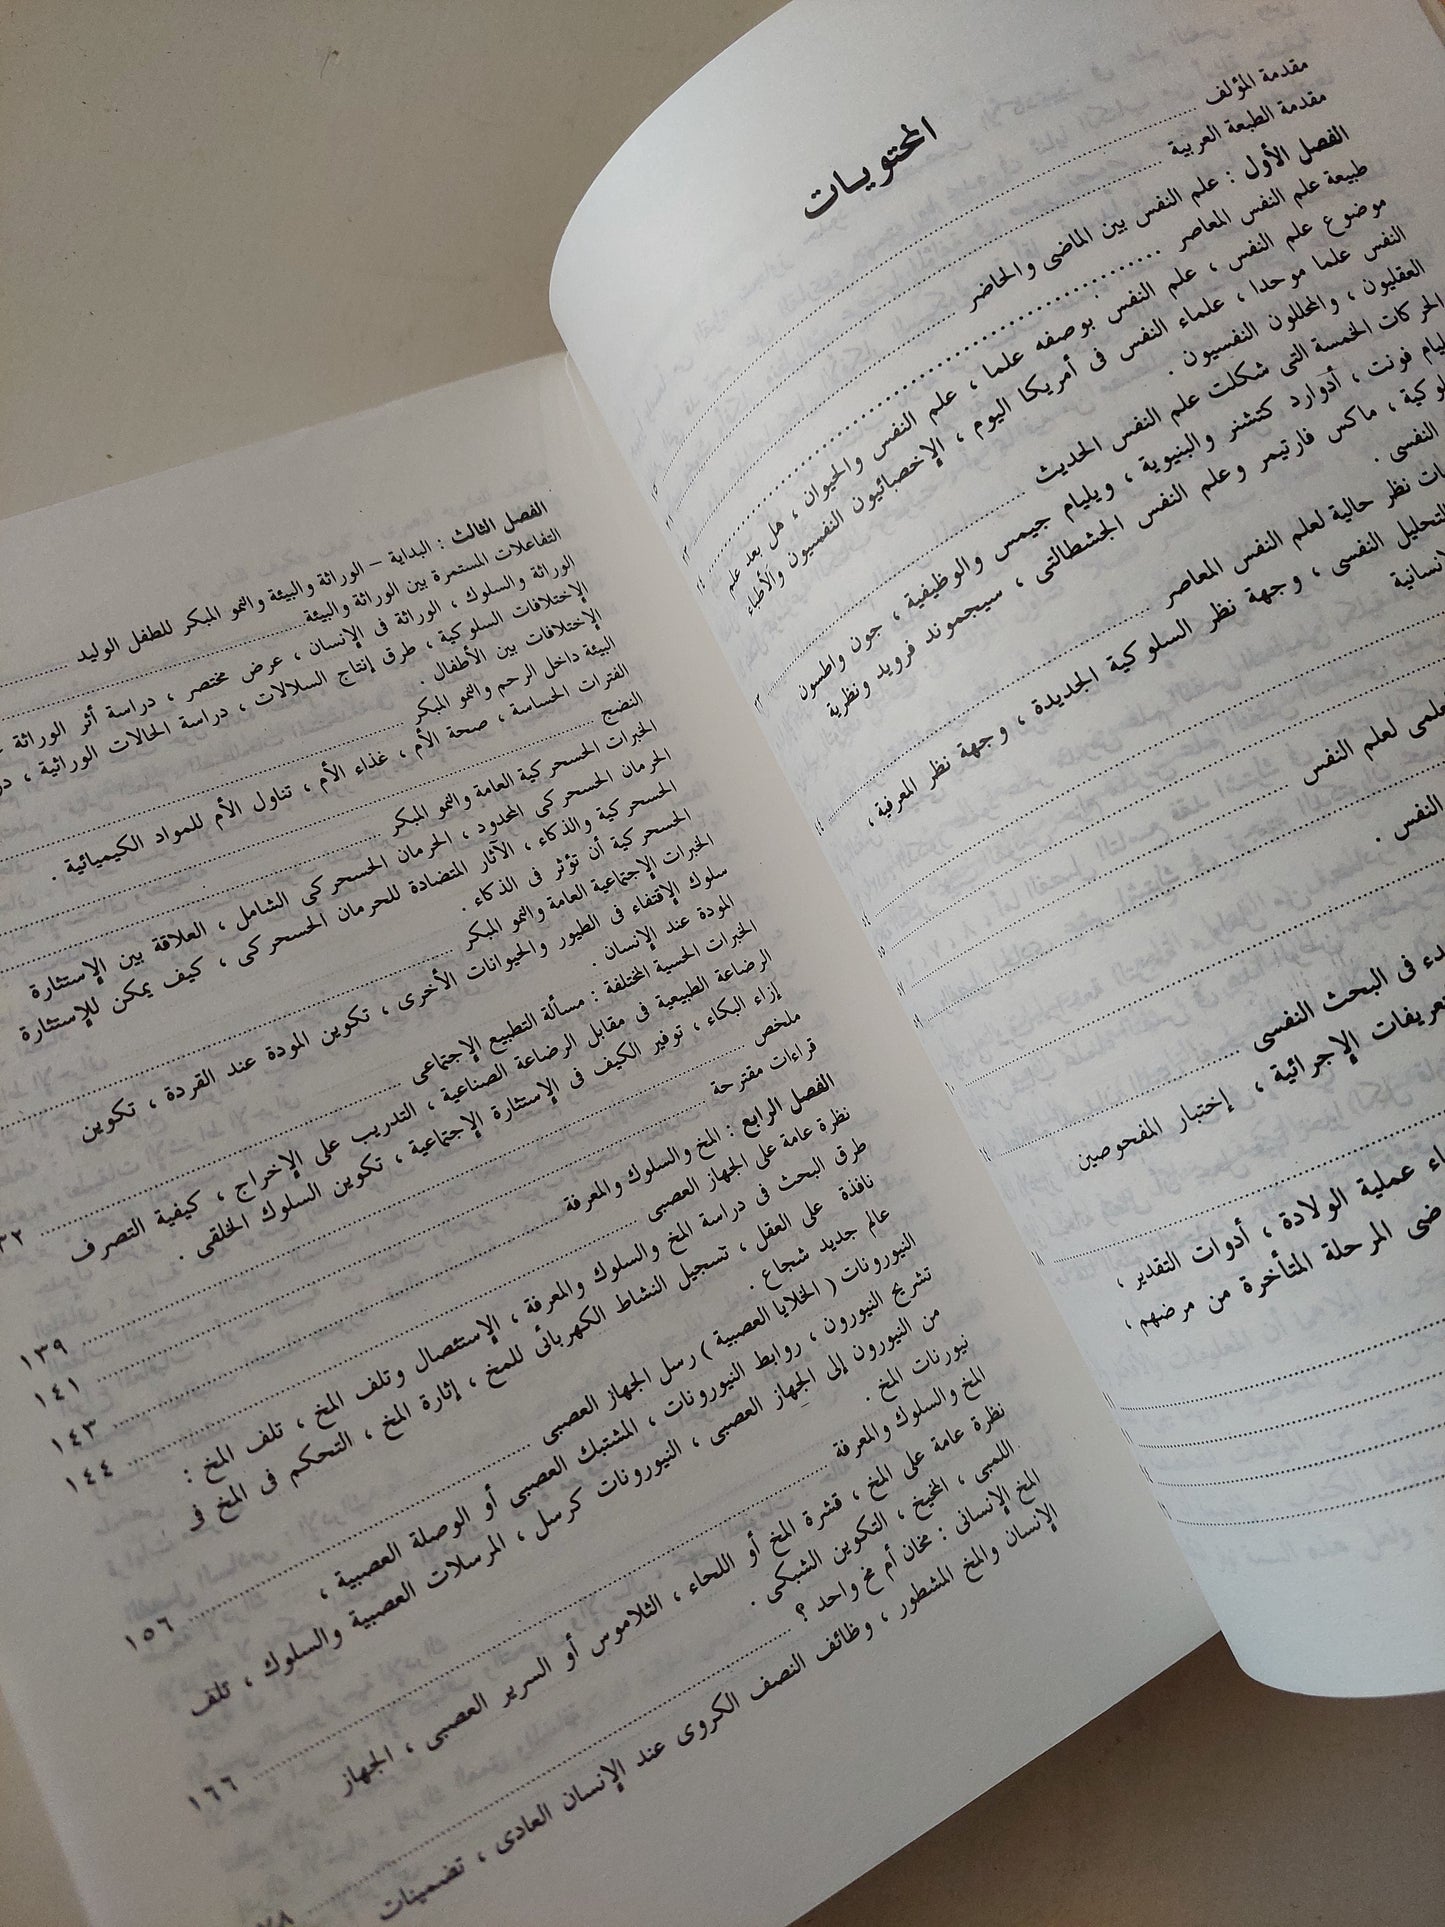 المحتويات
مقدمة المؤلف
مقدمة الطبعة العربية
الفصل الأول : علم النفس بين الماضى والحاضر
طبيعة علم النفس المعاصر
موضوع علم النفس ، علم النفس بوصفه علما ، علم النفس والحيوان ، هل بعد علم
النفس علما موحدا ، علماء النفس فى أمريكا اليوم ، الإخصائيون النفسيون والأطباء
العقليون ، والمحللون النفسيون .
الحركات الخمسة التى شكلت علم النفس الحديث
فونت ، أدوارد كتشنر والبنيوية ، ويليام جيمس والوظيفية ، جون واطسون
ماكس فارتيمر وعلم النفس الجشطالتى ، سيجموند فرويد ونظرية
النفسى .
نظر حالية لعلم النفس المعاصر
التحليل النفسى ، وجهة نظر السلوكية الجديدة ، وجهة نظر المعرفية ،
لعلم النفس
النفس .
فى البحث النفسى
الإجرائية ، إختبار المفحوصين
عملية الولادة ، أدوات التقدير ،
المرحلة المتأخرة من مرضهم ،
الفصل الثالث : البداية – الوراثة والبيئة والنمو المبكر للطفل الوليد
التفاعلات المستمرة بين الوراثة والبيئة
الوراثة والسلوك ، الوراثة فى الإنسان ، عرض مختصر ، دراسة أثر الوراثة
الإختلافات السلوكية ، طرق إنتاج السلالات ، دراسة الحالات الوراثية ،
الإختلافات بين الأطفال .
البيئة داخل الرحم والنمو المبكر
الفترات الحساسة ، صحة الأم ، غذاء الأم ، تناول الأم للمواد الكيميائية .
النضج
الخبرات الحسحركية العامة والنمو المبكر
الحرمان الحسحركى المحدود ، الحرمان الحسحركى الشامل ، العلاقة بين الإستثارة
الحسحركية والذكاء ، الآثار المتضادة للحرمان الحسحركى ، كيف يمكن للإستثارة
الحسحركية أن تؤثر فى الذكاء .
الخبرات الإجتماعية العامة والنمو المبكر
سلوك الإقتفاء فى الطيور والحيوانات الأخرى ، تكوين المودة عند القردة ، تكوين
المودة عند الإنسان .
الخبرات الحسية المختلفة : مسألة التطبيع الإجتماعى
الرضاعة الطبيعية فى مقابل الرضاعة الصناعية ، التدريب على الإخراج ، كيفية التصرف
إزاء البكاء ، توفير الكيف فى الإستثارة الإجتماعية ، تكوين السلوك الخلقى .
ملخص ١٣٩
قراءات مقترحة ١٤١
الفصل الرابع : المخ والسلوك والمعرفة ١٤٣
نظرة عامة على الجهاز العصبى ١٤٤
طرق البحث فى دراسة المخ والسلوك والمعرفة ، الإستئصال وتلف المخ ، تلف المخ :
نافذة على العقل ، تسجيل النشاط الكهربائى للمخ ، إثارة المخ ، التحكم فى المخ فى
عالم جديد شجاع .
النيورونات ( الخلايا العصبية ) رسل الجهاز العصبى ١٥٦
تشريح النيورون ، روابط النيورونات ، المشتبك العصبى أو الوصلة العصبية ،
من النيورون إلى الجهاز العصبى ، النيورونات كرسل ، المرسلات العصبية والسلوك ، تلف
نيورنات المخ .
المخ والسلوك والمعرفة ١٦٦
نظرة عامة على المخ ، قشرة المخ أو اللحاء ، الثلاموس أو السرير العصبى ، الجهاز
اللمبى ، المخيخ ، التكوين الشبكى .
المخ الإنسانى : مخان أم مخ واحد ؟
الإنسان والمخ المشطور ، وظائف النصف الكروى عند الإنسان العادى ، تضمينات